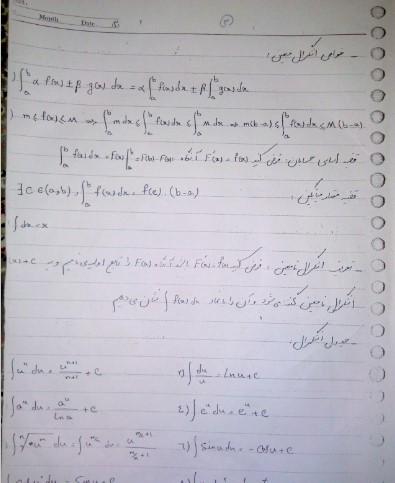 Month. Date.
- خواص انتگرال معین:
1) ∫_a^b α f(x) ± β g(x) dx = α ∫_a^b f(x) dx ± β ∫_a^b g(x) dx
) m ≤ f(x) ≤ M ⇒ ∫_a^b m dx ≤ ∫_a^b f(x) dx ≤ ∫_a^b M dx ⇒ m(b-a) ≤ ∫_a^b f(x) dx ≤ M(b-a)
قضیه اساسی حسابان: فرض کنید F'(x) = f(x) آنگاه ∫_a^b f(x) dx = F(x)|_a^b = F(b) - F(a)
قضیه مقدار میانگین: ∃ c ∈ (a,b) , ∫_a^b f(x) dx = f(c) . (b-a)
∫ dx = x
- تعریف انتگرال نامعین: فرض کنید F'(x) = f(x) آنگاه F(x) را تابع اولیه می نامیم و به (x)+c
انتگرال نامعین گفته می شود و آن را با نماد ∫ f(x) dx نشان می دهیم
- جدول انتگرال:
∫ u^n du = u^{n+1}/{n+1} + c ۲) ∫ du/u = ln u + c
∫ a^u du = a^u/{ln a} + c ٤) ∫ e^u du = e^u + c
∫ du = ∫ u^{m/n} du = ٦) ∫ sin u du = -cos u + c